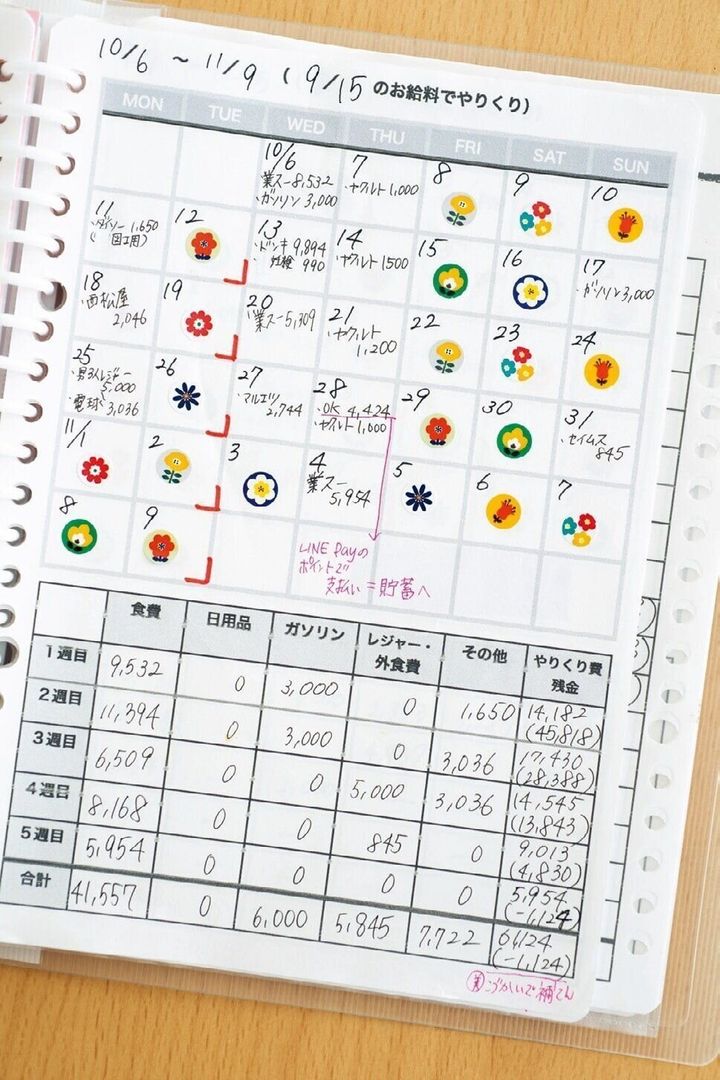 10/6 ~ 11/9 ( 9/15 のお給料でやりくり)
MON TUE WED THU FRI SAT SUN
10/6 7 8 9 10
業スー8,532 ・ヤクルト1,000
・ガソリン3,000
11 12 13 14 15 16 17
・ダイソー1,650 ・ドンキ9,894 ・ヤクルト1500 ・ガソリン3,000
(図工用) 990
18 19 20 21 22 23 24
・西松屋 ・業スー5,309 ・ヤクルト
2,046 1,200
25 26 27 28 29 30 31
・男3人レジャー ・マルエツ ・OK 4,424 ・セイムス
5,000 2,744 ・ヤクルト1,000 845
・電球 3,036
11/1 2 3 4 5 6 7
業スー
5,954
8 9
LINE Payの
ポイントで
支払い=貯蓄へ
食費 日用品 ガソリン レジャー・外食費 その他 やりくり費残金
1週目 9,532 0 3,000 0 1,650 14,182 (45,818)
2週目 11,394 0 3,000 0 3,036 17,430 (28,388)
3週目 6,509 0 0 5,000 3,036 14,545 (13,843)
4週目 8,168 0 0 845 0 9,013 (4,830)
5週目 5,954 0 0 0 0 5,954 (-1,124)
合計 41,557 0 6,000 5,845 7,722 61,124 (-1,124)
こづかいで補てん